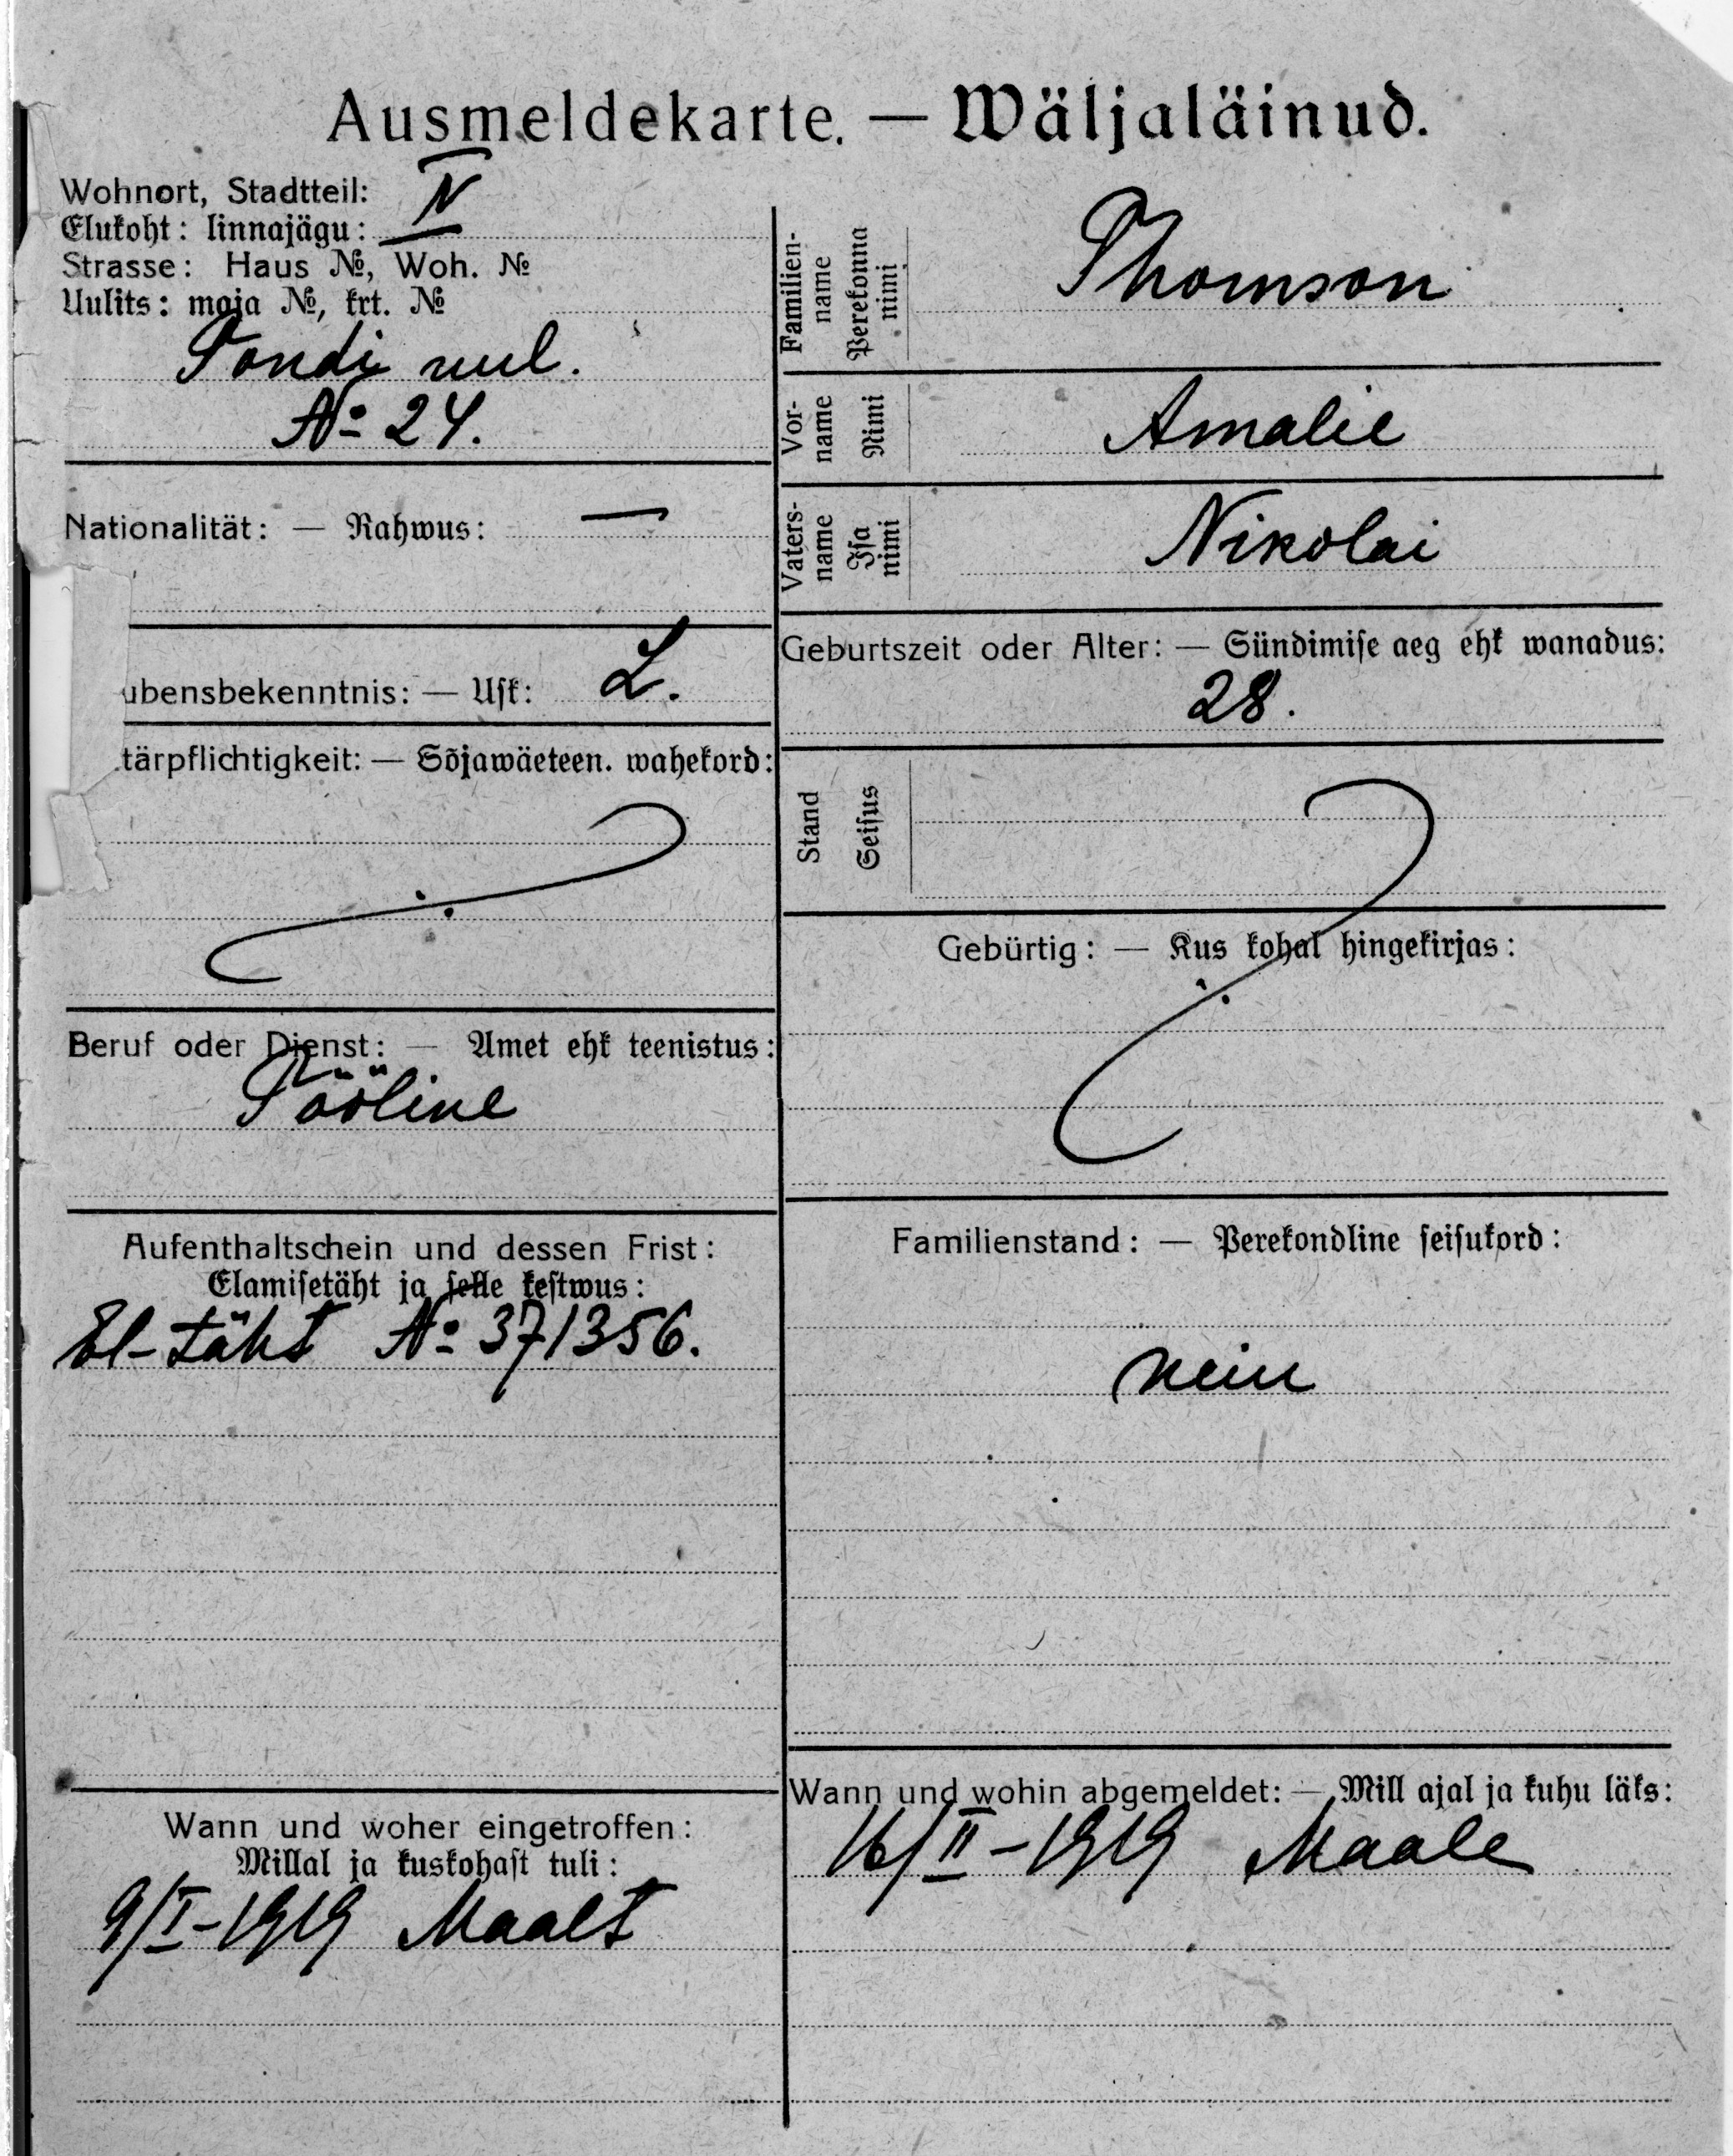 Ausmeldekarte. — Wäljaläinud.
Wohnort, Stadtteil: IV
Elukoht: linnajägu:
Strasse: Haus №, Woh. №
Uulits: maja №, krt. №
Tondi uul.
№ 24.
Nationalität: — Rahwus: —
ubensbekenntnis: — Usk: L.
tärpflichtigkeit: — Sõjawäeteen. wahekord:
Beruf oder Dienst: — Amet ehk teenistus:
Tööline
Aufenthaltschein und dessen Frist:
Elamisetäht ja selle kestwus:
El-täht № 371356.
Wann und woher eingetroffen:
Millal ja kuskohast tuli:
9/I-1919 Maalt
Familien-
name
Perekonna
nimi
Thomson
Vor-
name
Nimi
Amalie
Vaters-
name
Isa
nimi
Nikolai
Geburtszeit oder Alter: — Sündimise aeg ehk wanadus:
28.
Stand
Seisus
Gebürtig: — Kus kohal hingekirjas:
Familienstand: — Perekondline seisukord:
neiu
Wann und wohin abgemeldet: — Mill ajal ja kuhu läks:
16/II-1919 Maale